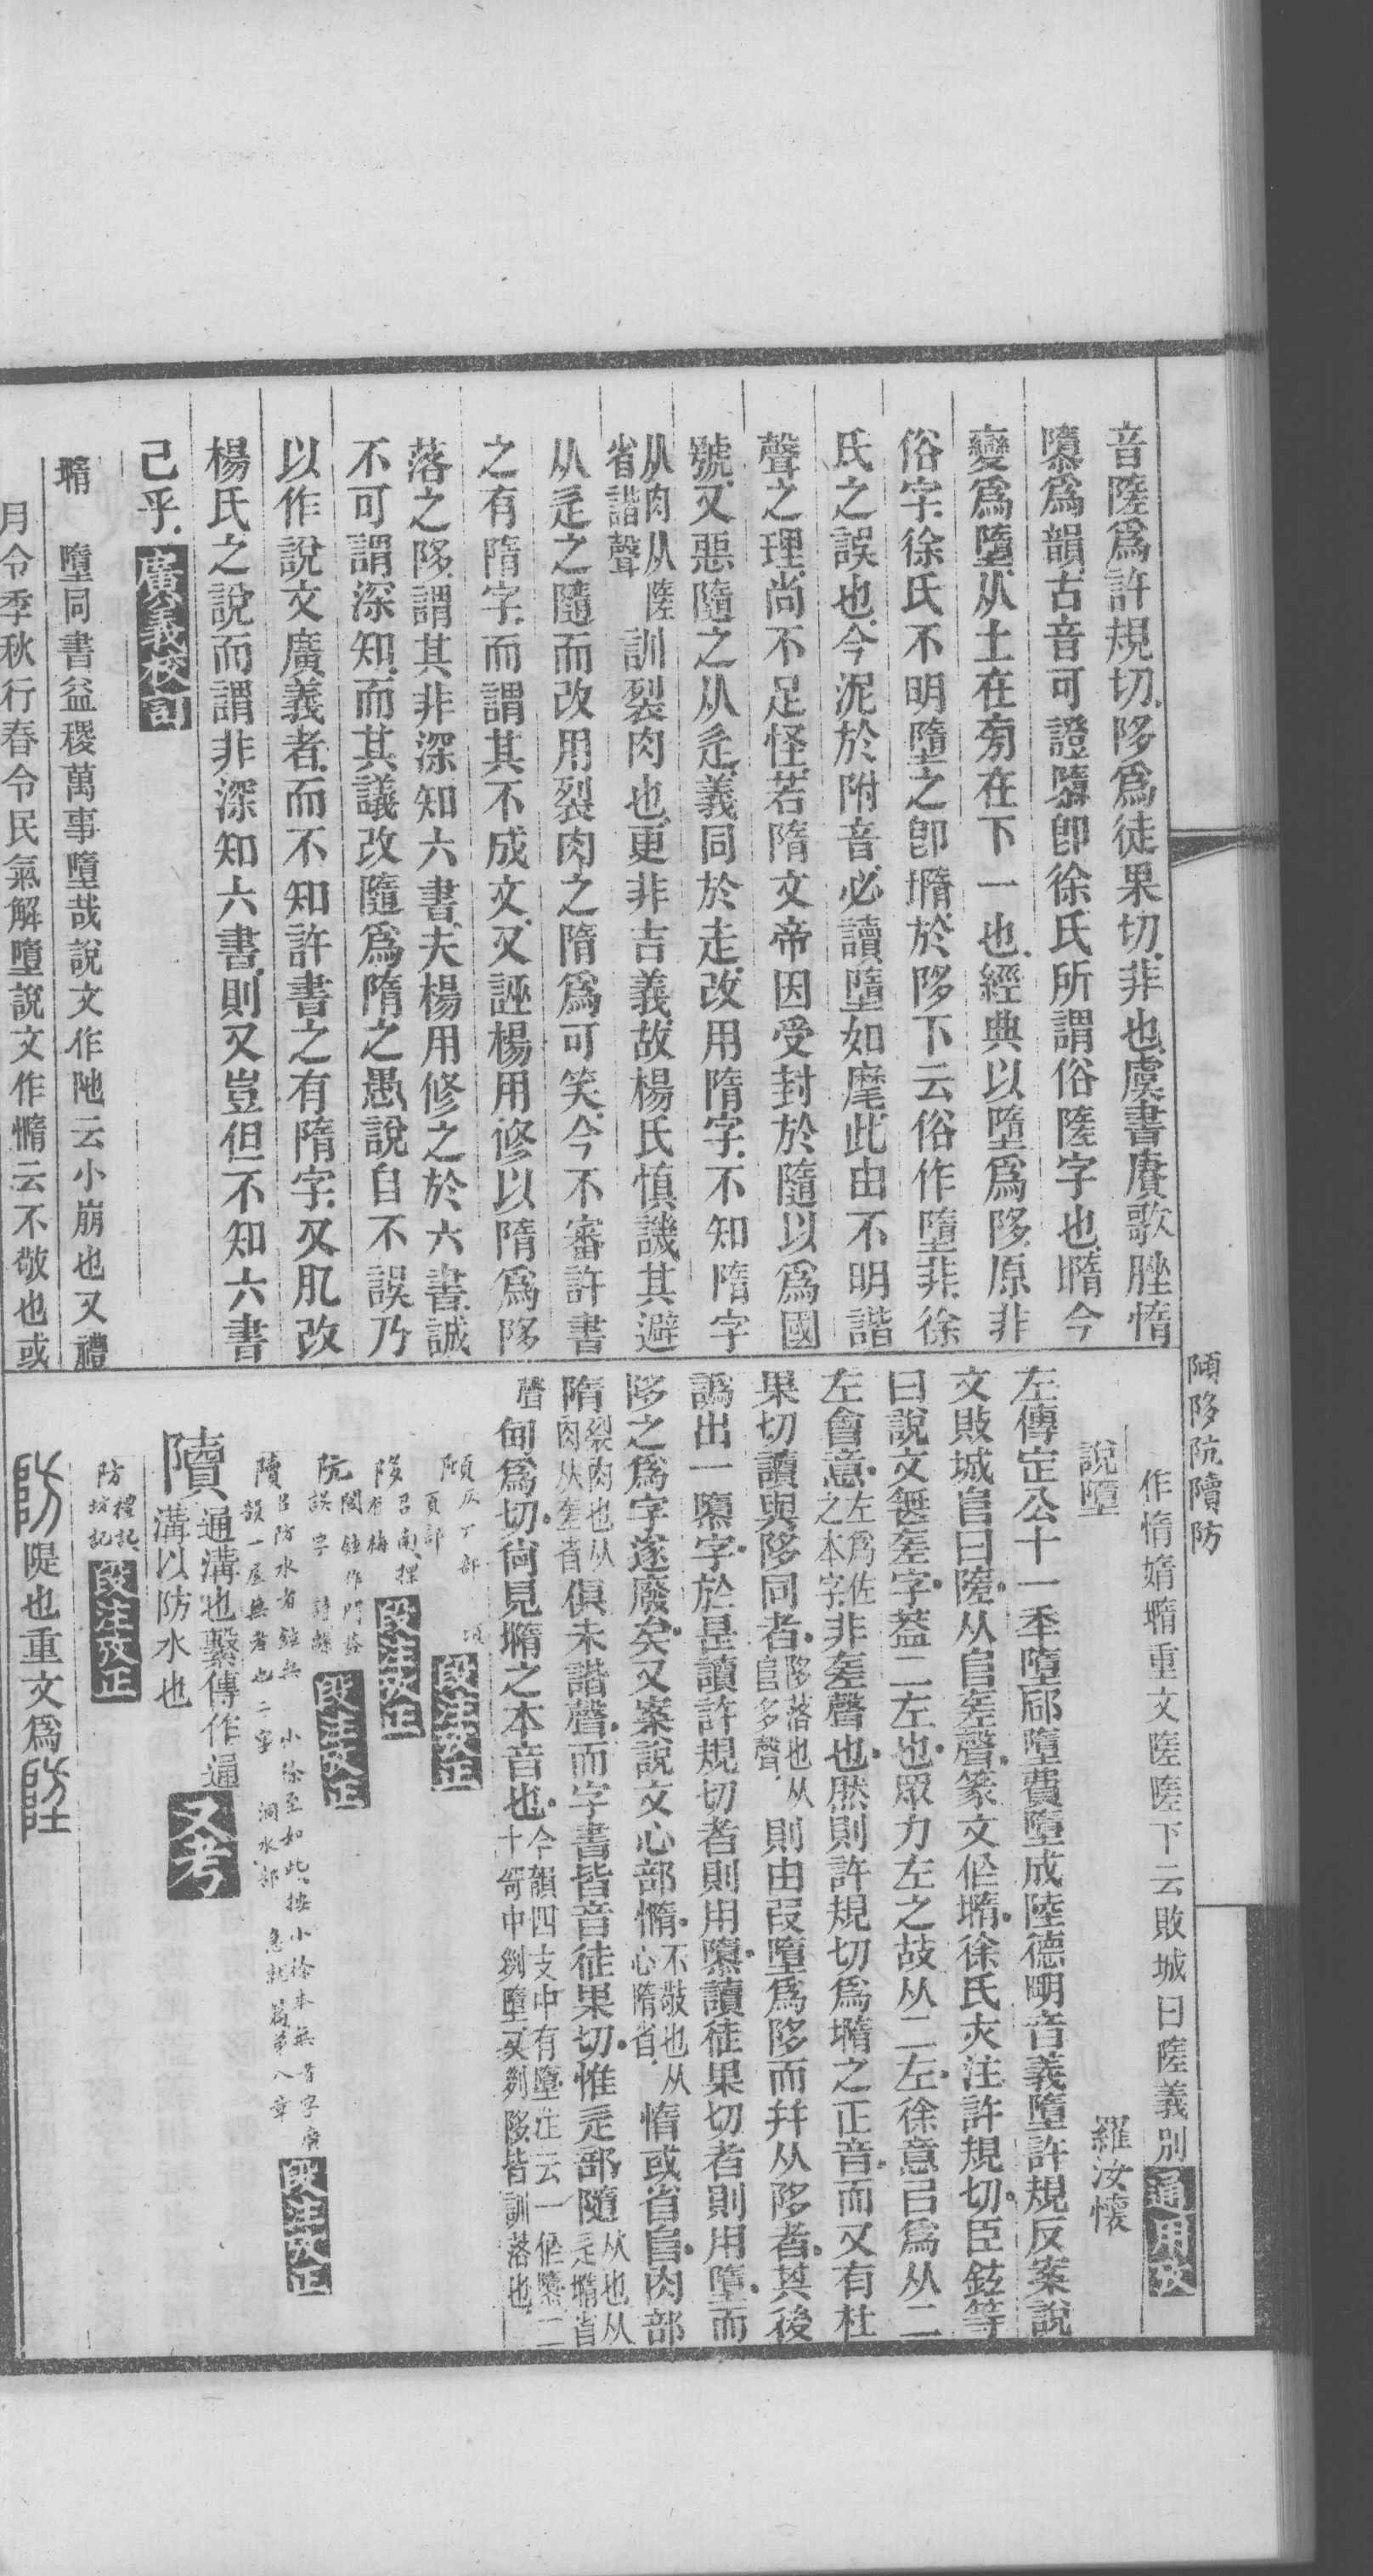 音隓爲許規切陊爲徒果切非也虞書賡歌脞惰
隳爲韻古音可證隳卽徐氏所謂俗隓字也墮今
變爲墮从土在旁在下一也經典以墮爲陊原非
俗字徐氏不明墮之卽墮於陊下云俗作墮非徐
氏之誤也今泥於附音必讀墮如麾此由不明諧
聲之理尚不足怪若隋文帝因受封於隨以爲國
號又惡隨之从辵義同於走改用隋字不知隋字
从肉从隓
省諧聲
訓裂肉也更非吉義故楊氏慎譏其避
从辵之隨而改用裂肉之隋爲可笑今不審許書
之有隋字而謂其不成文又誣楊用修以隋爲陊
落之陊謂其非深知六書夫楊用修之於六書誠
不可謂深知而其議改隨爲隋之愚說自不誤乃
以作說文廣義者而不知許書之有隋字又肊改
楊氏之說而謂非深知六書則又豈但不知六書
己乎廣義校訂
墮 墮同書益稷萬事墮哉說文作阤云小崩也又禮
月令季秋行春令民氣解墮說文作惰云不敬也或
陊阬隫防
作惰媠墮重文隓隓下云敗城曰隓義別通用攷
說墮
羅汝懷
左傳定公十一秊墮郈墮費墮成陸德明音義墮許規反案說
文敗城𨸏曰隓从𨸏差聲篆文作墮徐氏夾注許規切臣鉉等
曰說文無差字葢二左也眾力左之故从二左徐意㠯爲从二
左會意左爲佐
之本字非差聲也然則許規切爲墮之正音而又有杜
果切讀與陊同者陊落也从
𨸏多聲則由叚墮爲陊而幷从陊者其後
譌出一隳字於是讀許規切者則用隳讀徒果切者則用墮而
陊之爲字遂廢矣又案說文心部憜不敬也从
心隋省惰或省𨸏肉部
隋裂肉也从
肉从差省俱未諧聲而字書皆音徒果切惟辵部隨从也从
辵墮省
聲旬爲切尙見墮之本音也今韻四支中有墮注云一作隳二
十哿中剟墮又剟陊皆訓落也
頁部
段注攷正
陊
召南摽
有梅
段注攷正
阬
閬
誤字
段注攷正
隫
呂防水者
韻一屋
小徐
如此按小徐本無
洞水部
急就篇第八章
段注攷正
隫
通溝也繫傳作通
溝以防水也
又考
防
禮記
坊記
段注攷正
防隄也重文爲